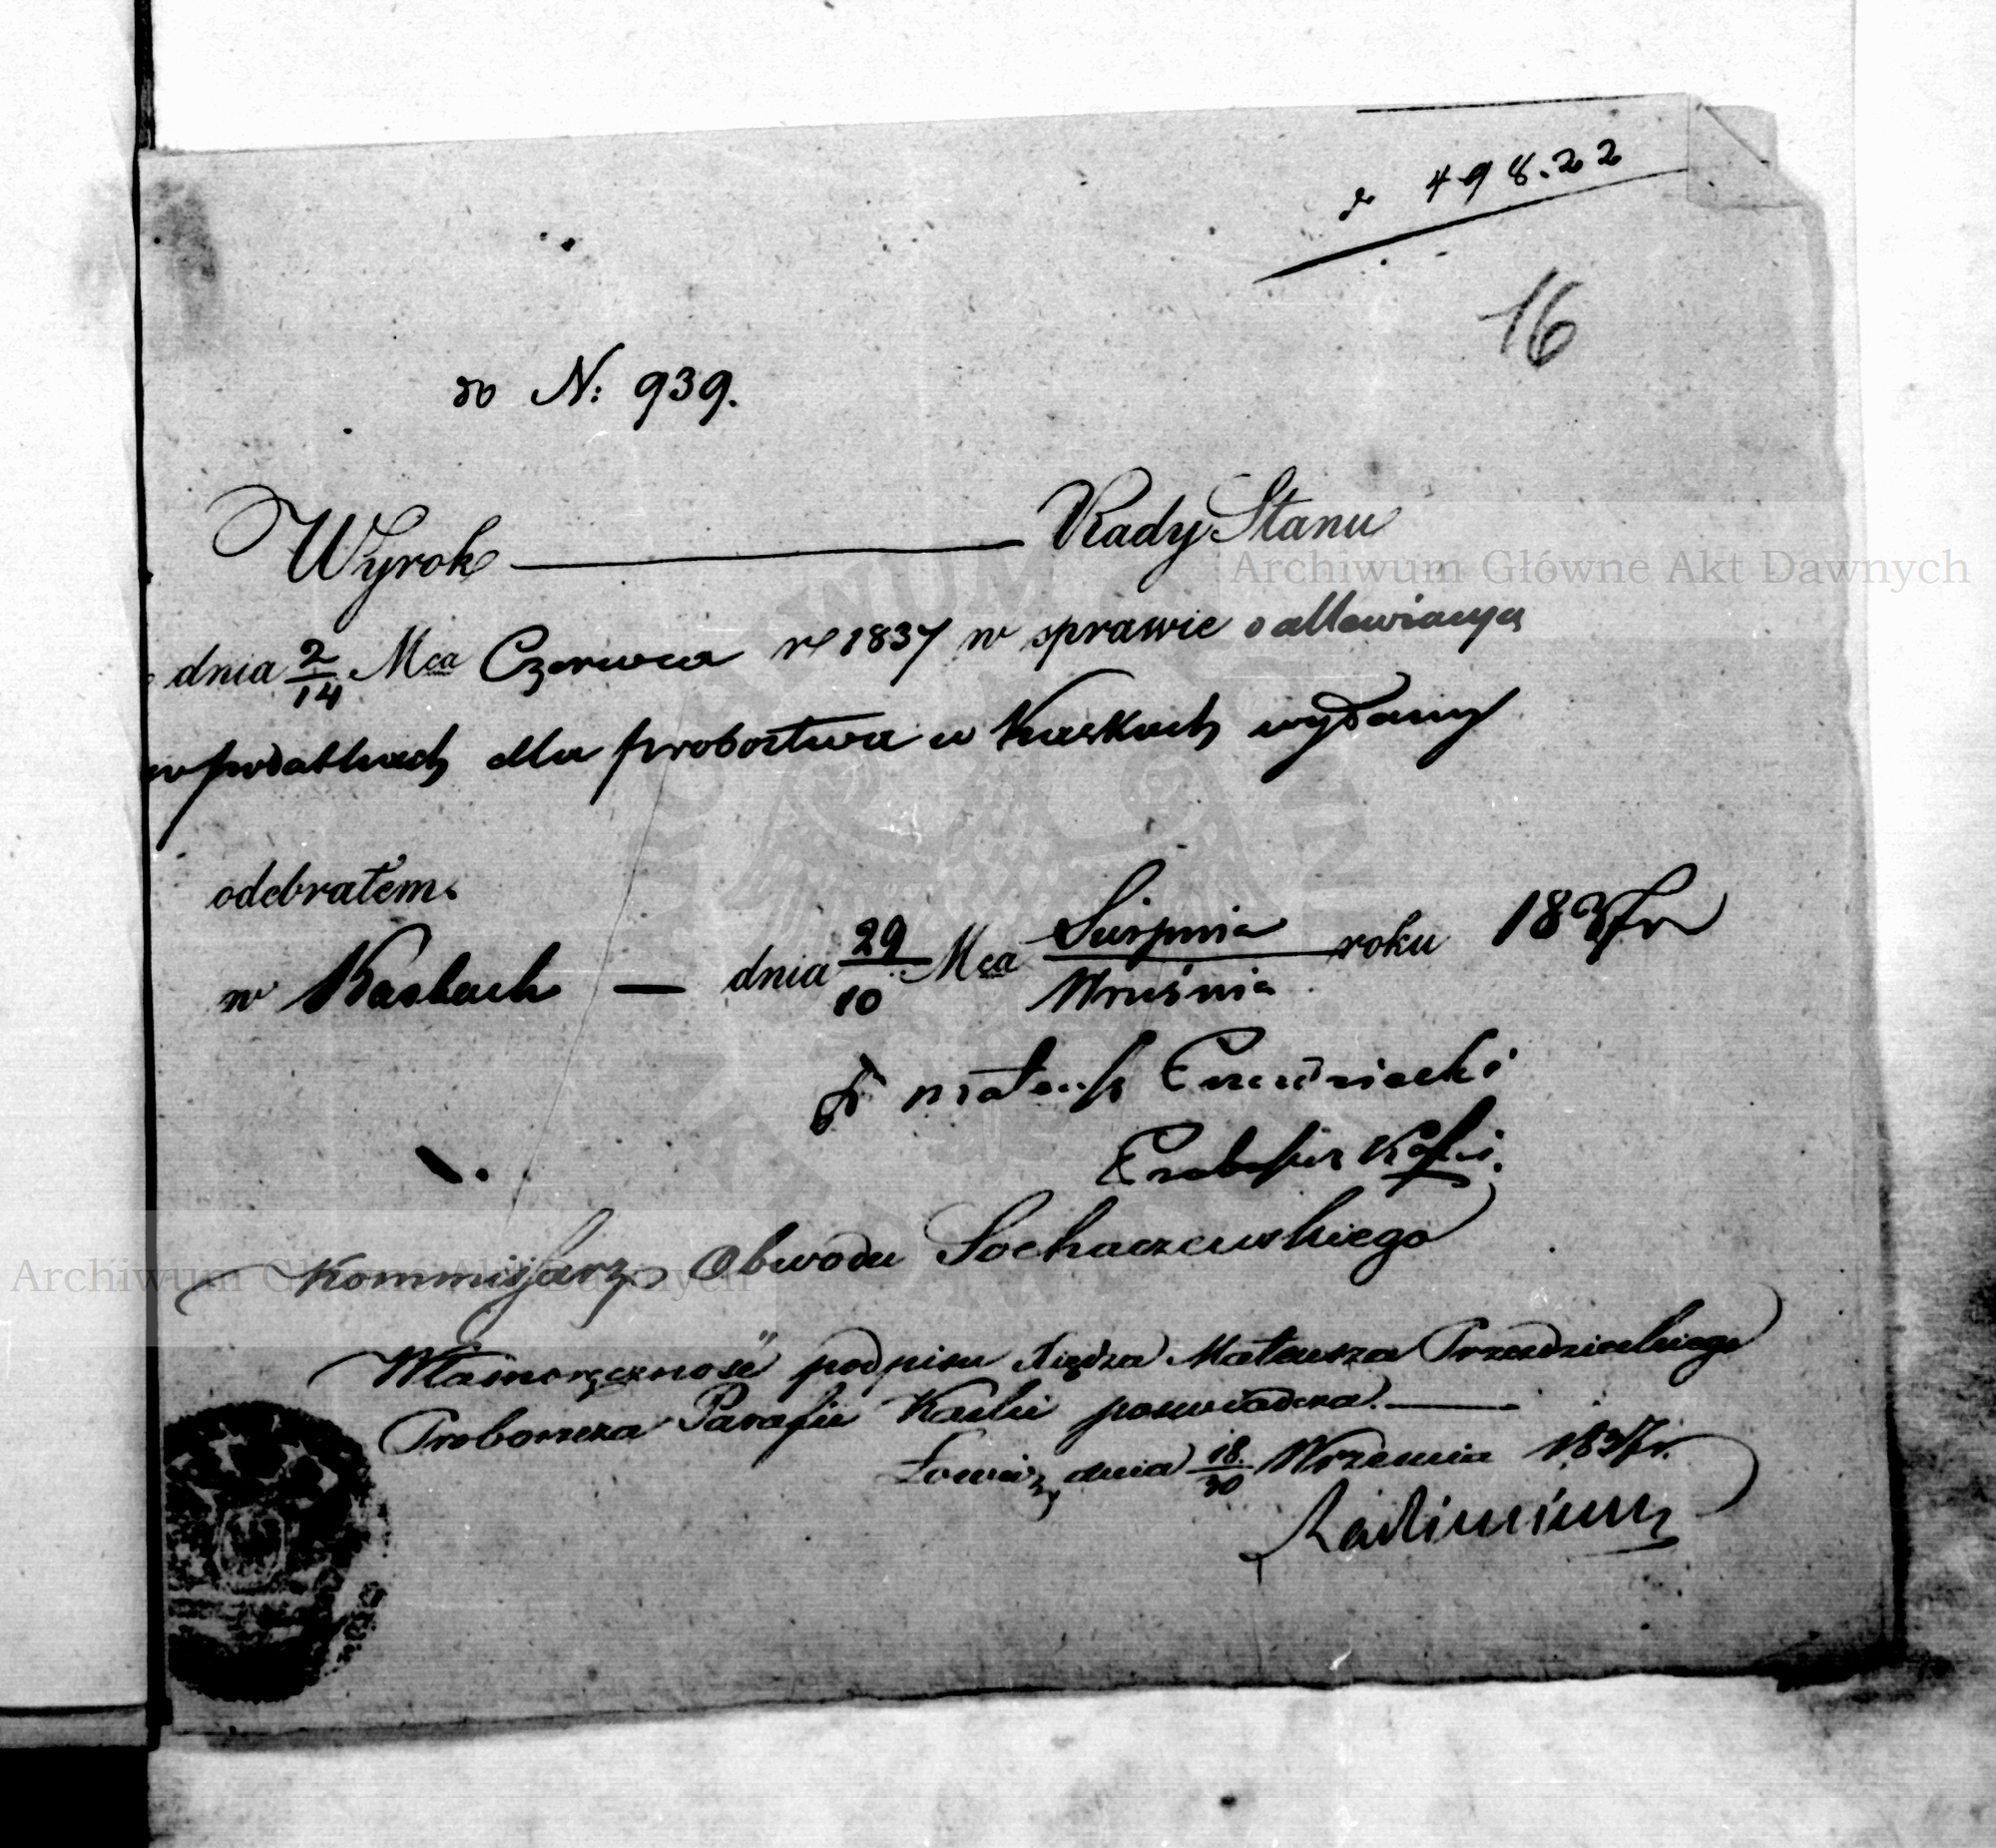 do 498.22
16
do N: 939.
Wyrok — Rady Stanu
dnia 2/14 Mca Czerwca r 1837 w sprawie o allewiacyą
w podatkach dla probostwa w Kaskach wydany
odebrałem.
w Kaskach — dnia 29/10 Mca Sierpnia/Września roku 1837 r
X Mateusz
Kaski.
Kommissarz Obwodu Sochaczewskiego
Własnoręczność podpisu Xiędza Mateusza Przezdzieckiego
Proboszcza Parafii Kaski poswiadcza. —
Łowicz, dnia 18/30 Wrzesnia 1837 r.
Archiwum Główne Akt Dawnych
Archiwum Główne Akt Dawnych